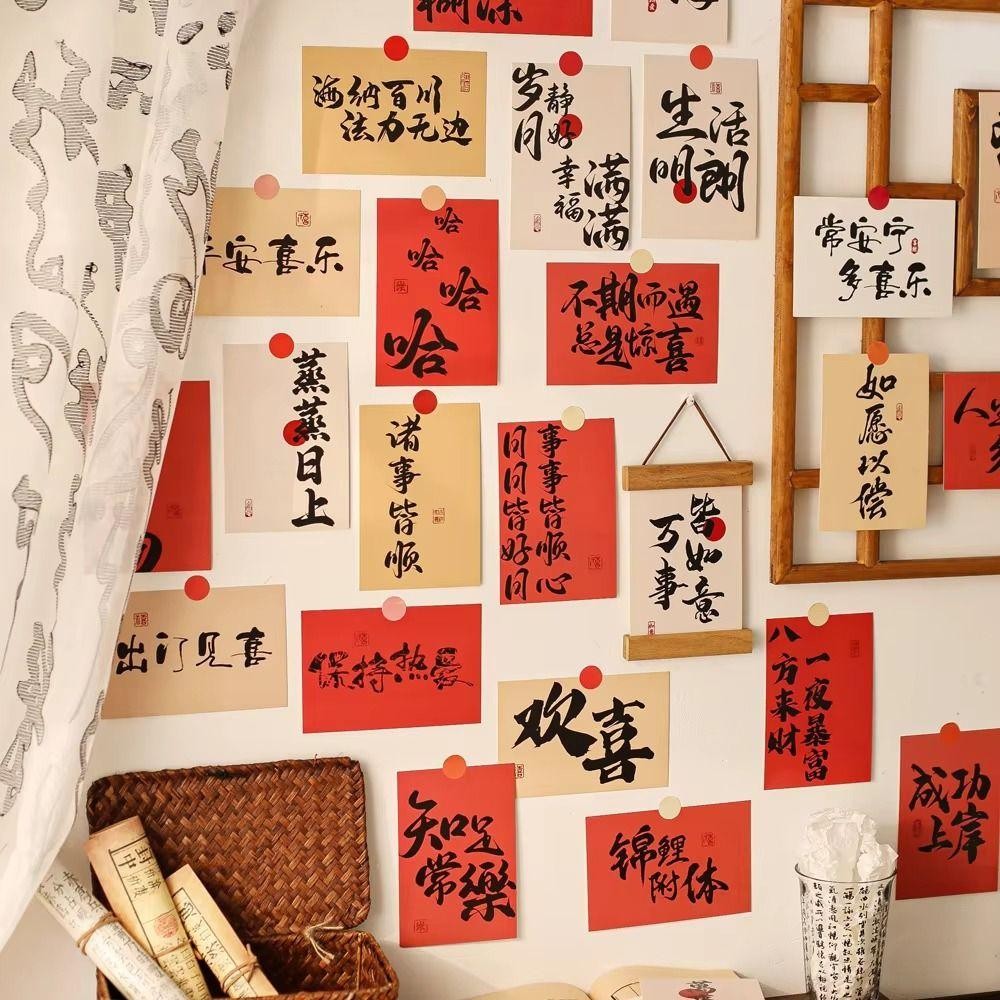 海纳百川
法力无边
岁月静好
幸福满满
生活
明朗
平安喜乐
哈
哈
哈
哈
不期而遇
总是惊喜
常安宁
多喜乐
如愿以偿
蒸蒸日上
诸事皆顺
事事皆顺心
日日皆好日
万事
皆如意
出门见喜
保持热爱
欢喜
八方来财
一夜暴富
知足
常樂
锦鲤
附体
成功
上岸